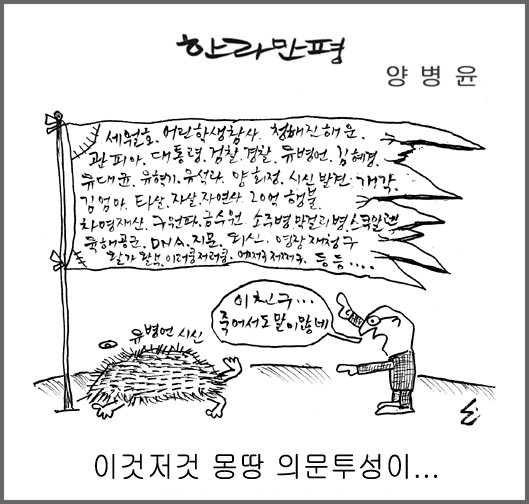 한라만평
양병윤
세월호. 어린학생참사. 청해진해운.
관피아. 대통령. 검찰. 경찰. 유병언. 김혜경.
유대균. 유혁기. 유석라. 양회정. 시신발견. 개각.
김엄마. 타살. 자살. 자연사. 20억 행불.
차명재산. 구원파. 금수원. 소주병. 막걸리병. 스쿠알렌
육해공군. DNA. 지문. 영장재청구
왈가왈부. 이러쿵저러쿵. 등등....
이친구...
죽어서도 말이많네
유병언 시신
이것저것 몽땅 의문투성이...